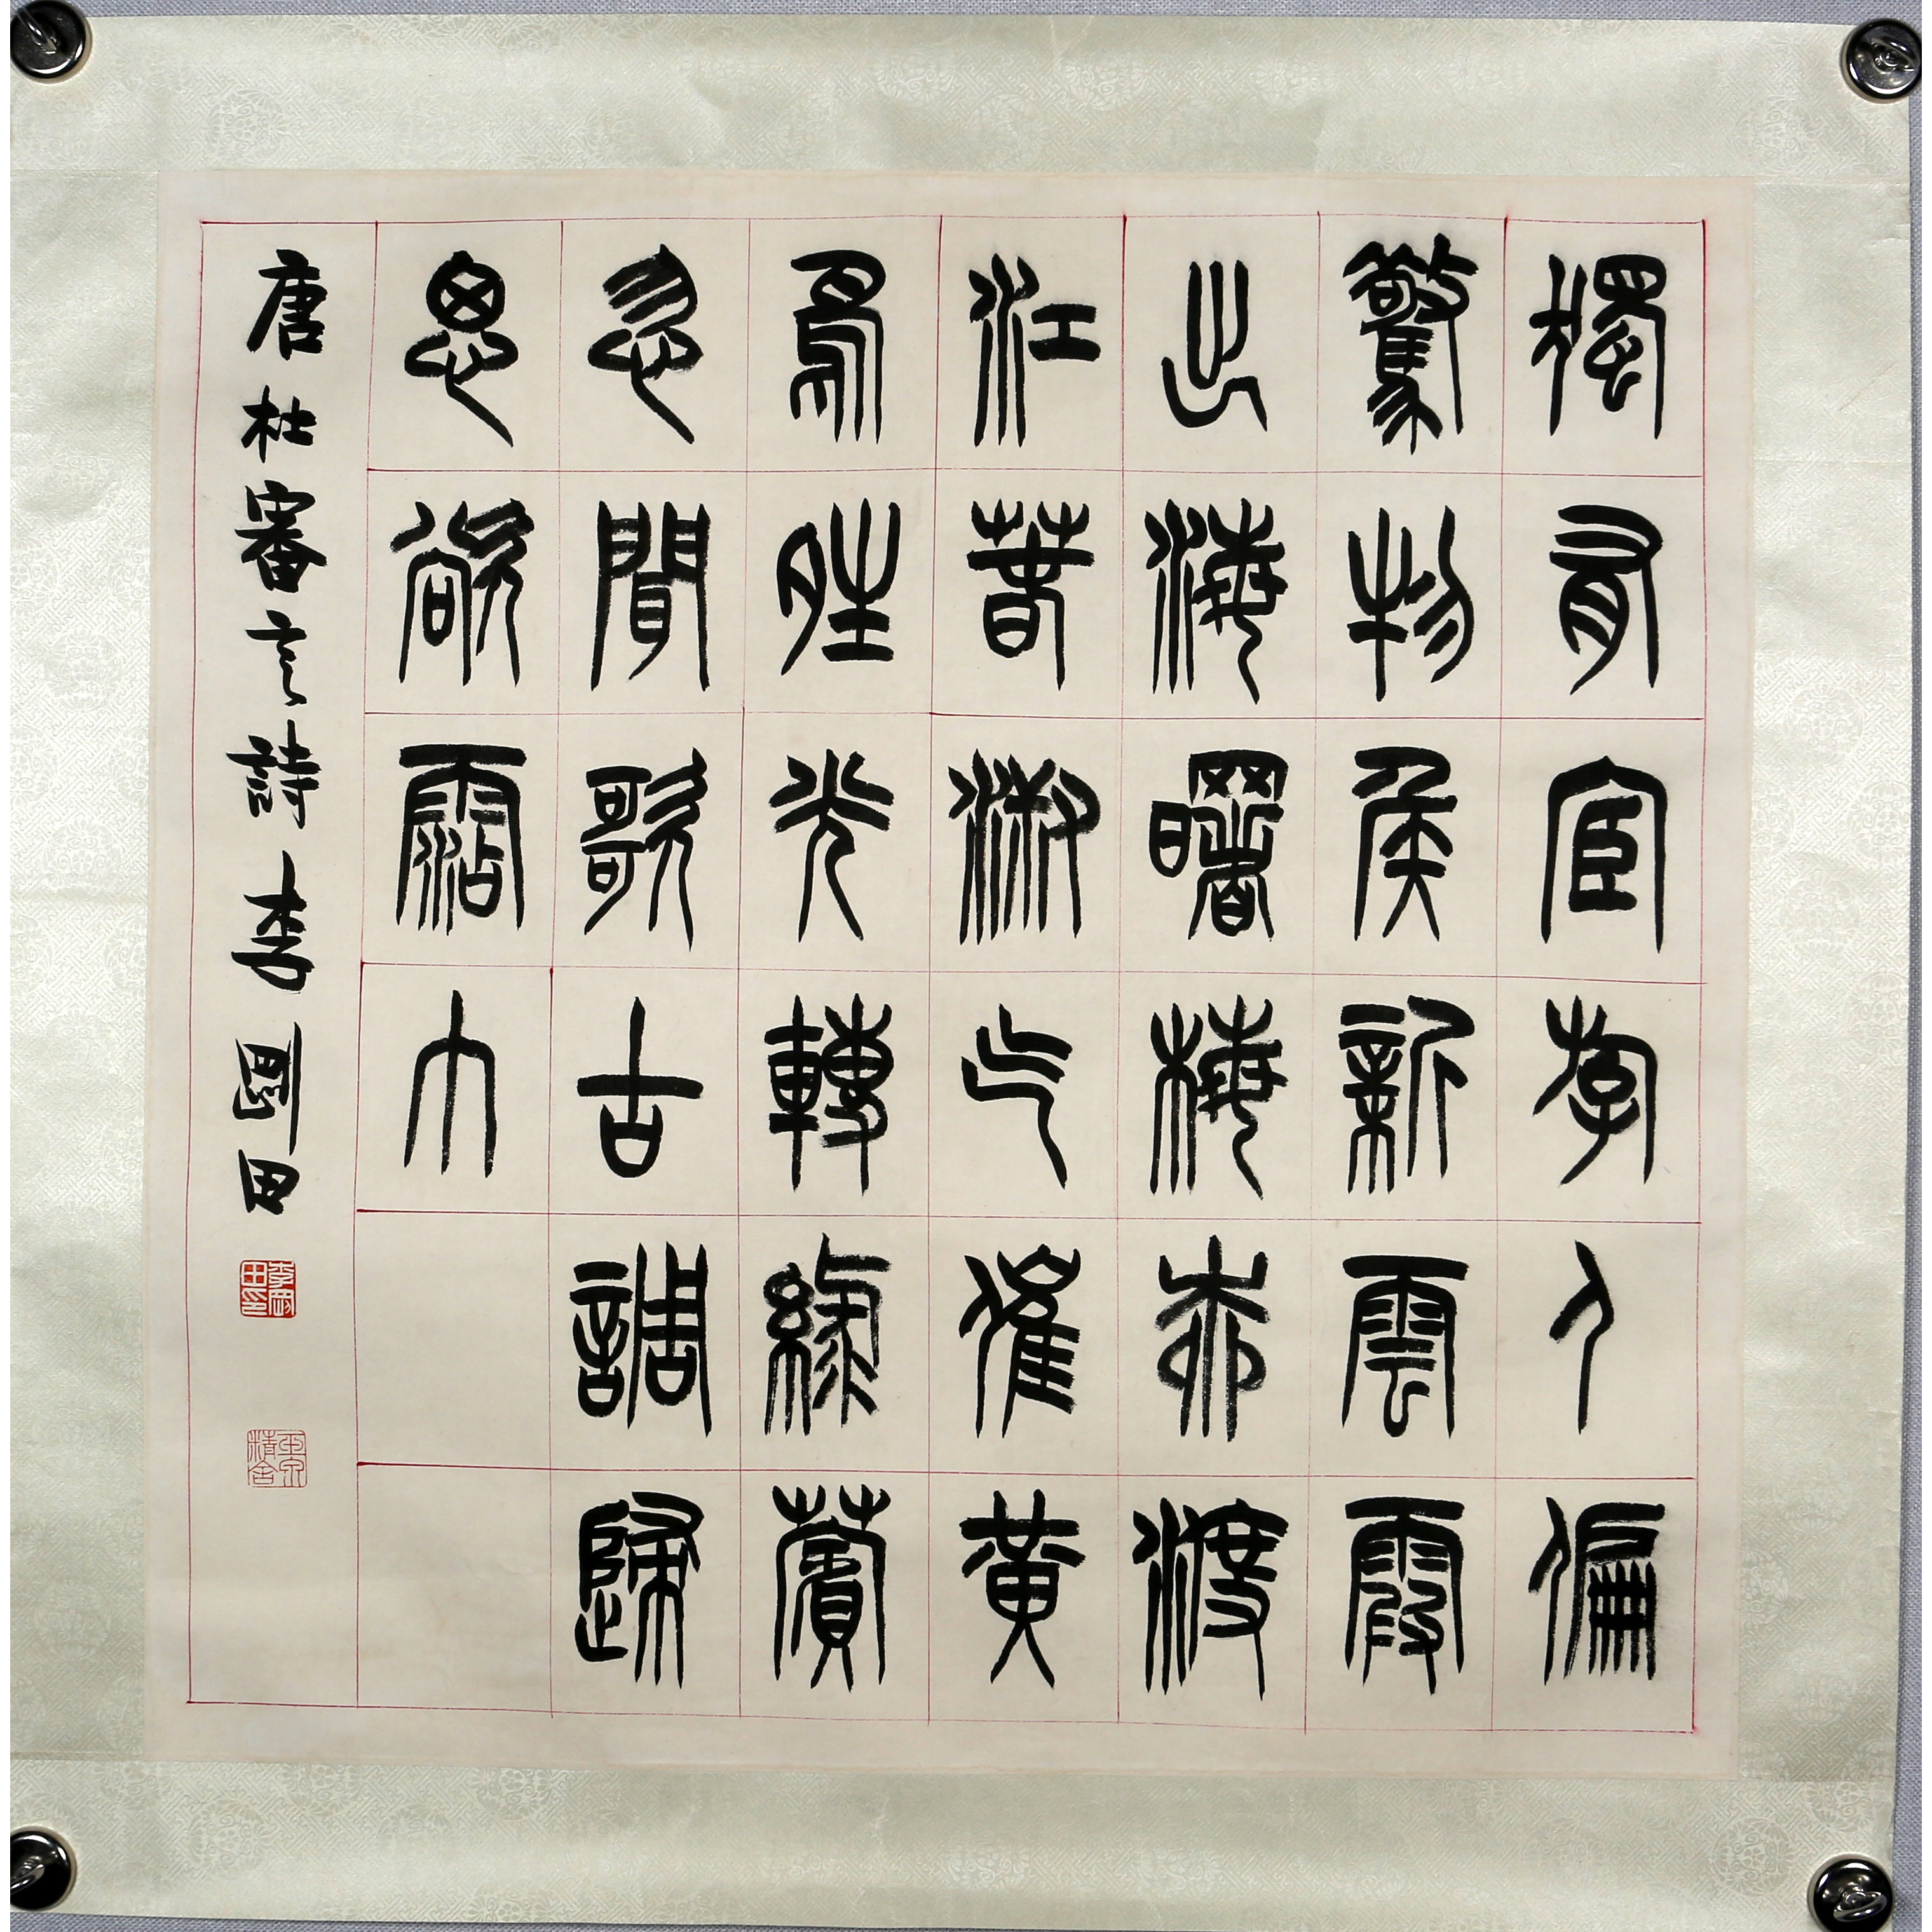 獨有宦游人偏
驚物候新雲霞
出海曙梅柳渡
江春淑气催黃
鳥晴光轉綠薲
忽聞歌古調歸
思欲霑巾
唐杜審言詩李剛田
李剛田印